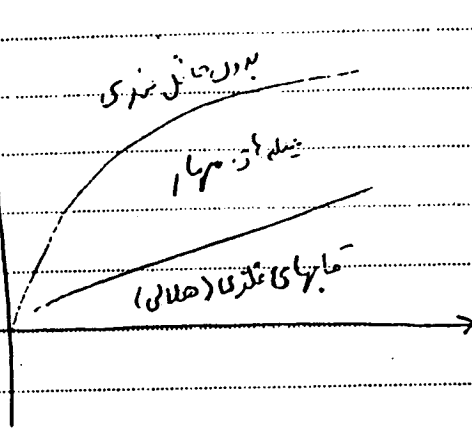 بدون حائل فلزی
میله های مهار
قابهای فلزی (هلالی)